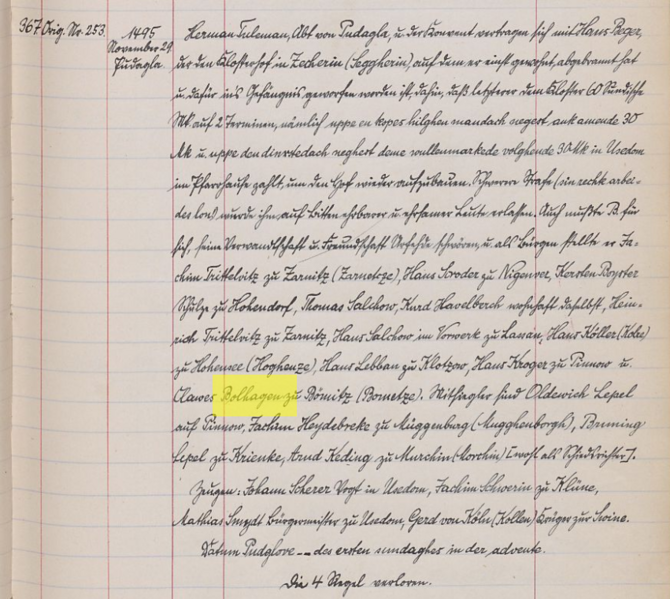 367 Orig. Nr. 253. 1495 November 29 Pudagla.
Herman Tuleman, Abt von Pudagla, u. der Konvent vertragen sich mit Hans Beger,
der den Klosterhof in Zecherin (Seggherin), auf dem er einst gewohnt, abgebrannt hat
u. dafür ins Gefängnis geworfen worden ist, dahin, daß letzterer dem Kloster 60 Sundische
Mk auf 2 Terminen, nämlich uppe en kopes hilghen mandach negest ank amende 30
Mk u. uppe den dinxtedach neghest deme wullenmarkede volghende 30 Mk in Usedom
im Pfarrhause zahlt, um den Hof wieder aufzubauen. Schwerere Strafe (sin recht arbei-
des lon) wurde ihm auf Bitten ehrbarer u. ehrsamer Leute erlassen. Auch mußte B. für
sich, seine Verwandtschaft u. Freundschaft Urfehde schwören, u. als Bürgen stellte er Ja-
chim Trittelvitz zu Zarnitz (Zarnetze), Hans Scroder zu Nigenver, Kersten Boyster
Schulze zu Hohendorf, Thomas Salchow, Kurd Havelberch wohnhaft daselbst, Hein-
rich Trittelvitz zu Zarnitz, Hans Salchow im Vorwerk zu Lassan, Hans Köller (Kolre)
zu Hohensee (Hoghenze), Hans Lebban zu Klotzow, Hans Kroger zu Pinnow u.
Clawes Bolhagen zu Bömitz (Bometze). Mitsagler sind Oldewich Lepel
auf Pinnow, Jachim Heydebreke zu Müggenburg (Mugghenborgh), Henning
Lepel zu Krienke, Arnd Keding zu Murchin (Morchin) [wohl als Schiedsrichter].
Zeugen: Johann Scherer Vogt in Usedom, Jachim Schwerin zu Klüne,
Mathias Smydt Bürgermeister zu Usedom, Gerd von Köln (Kollen) Krüger zur Swine.
Datum Pudglove -- des ersten sundaghes in der advente.
Die 4 Siegel verloren.